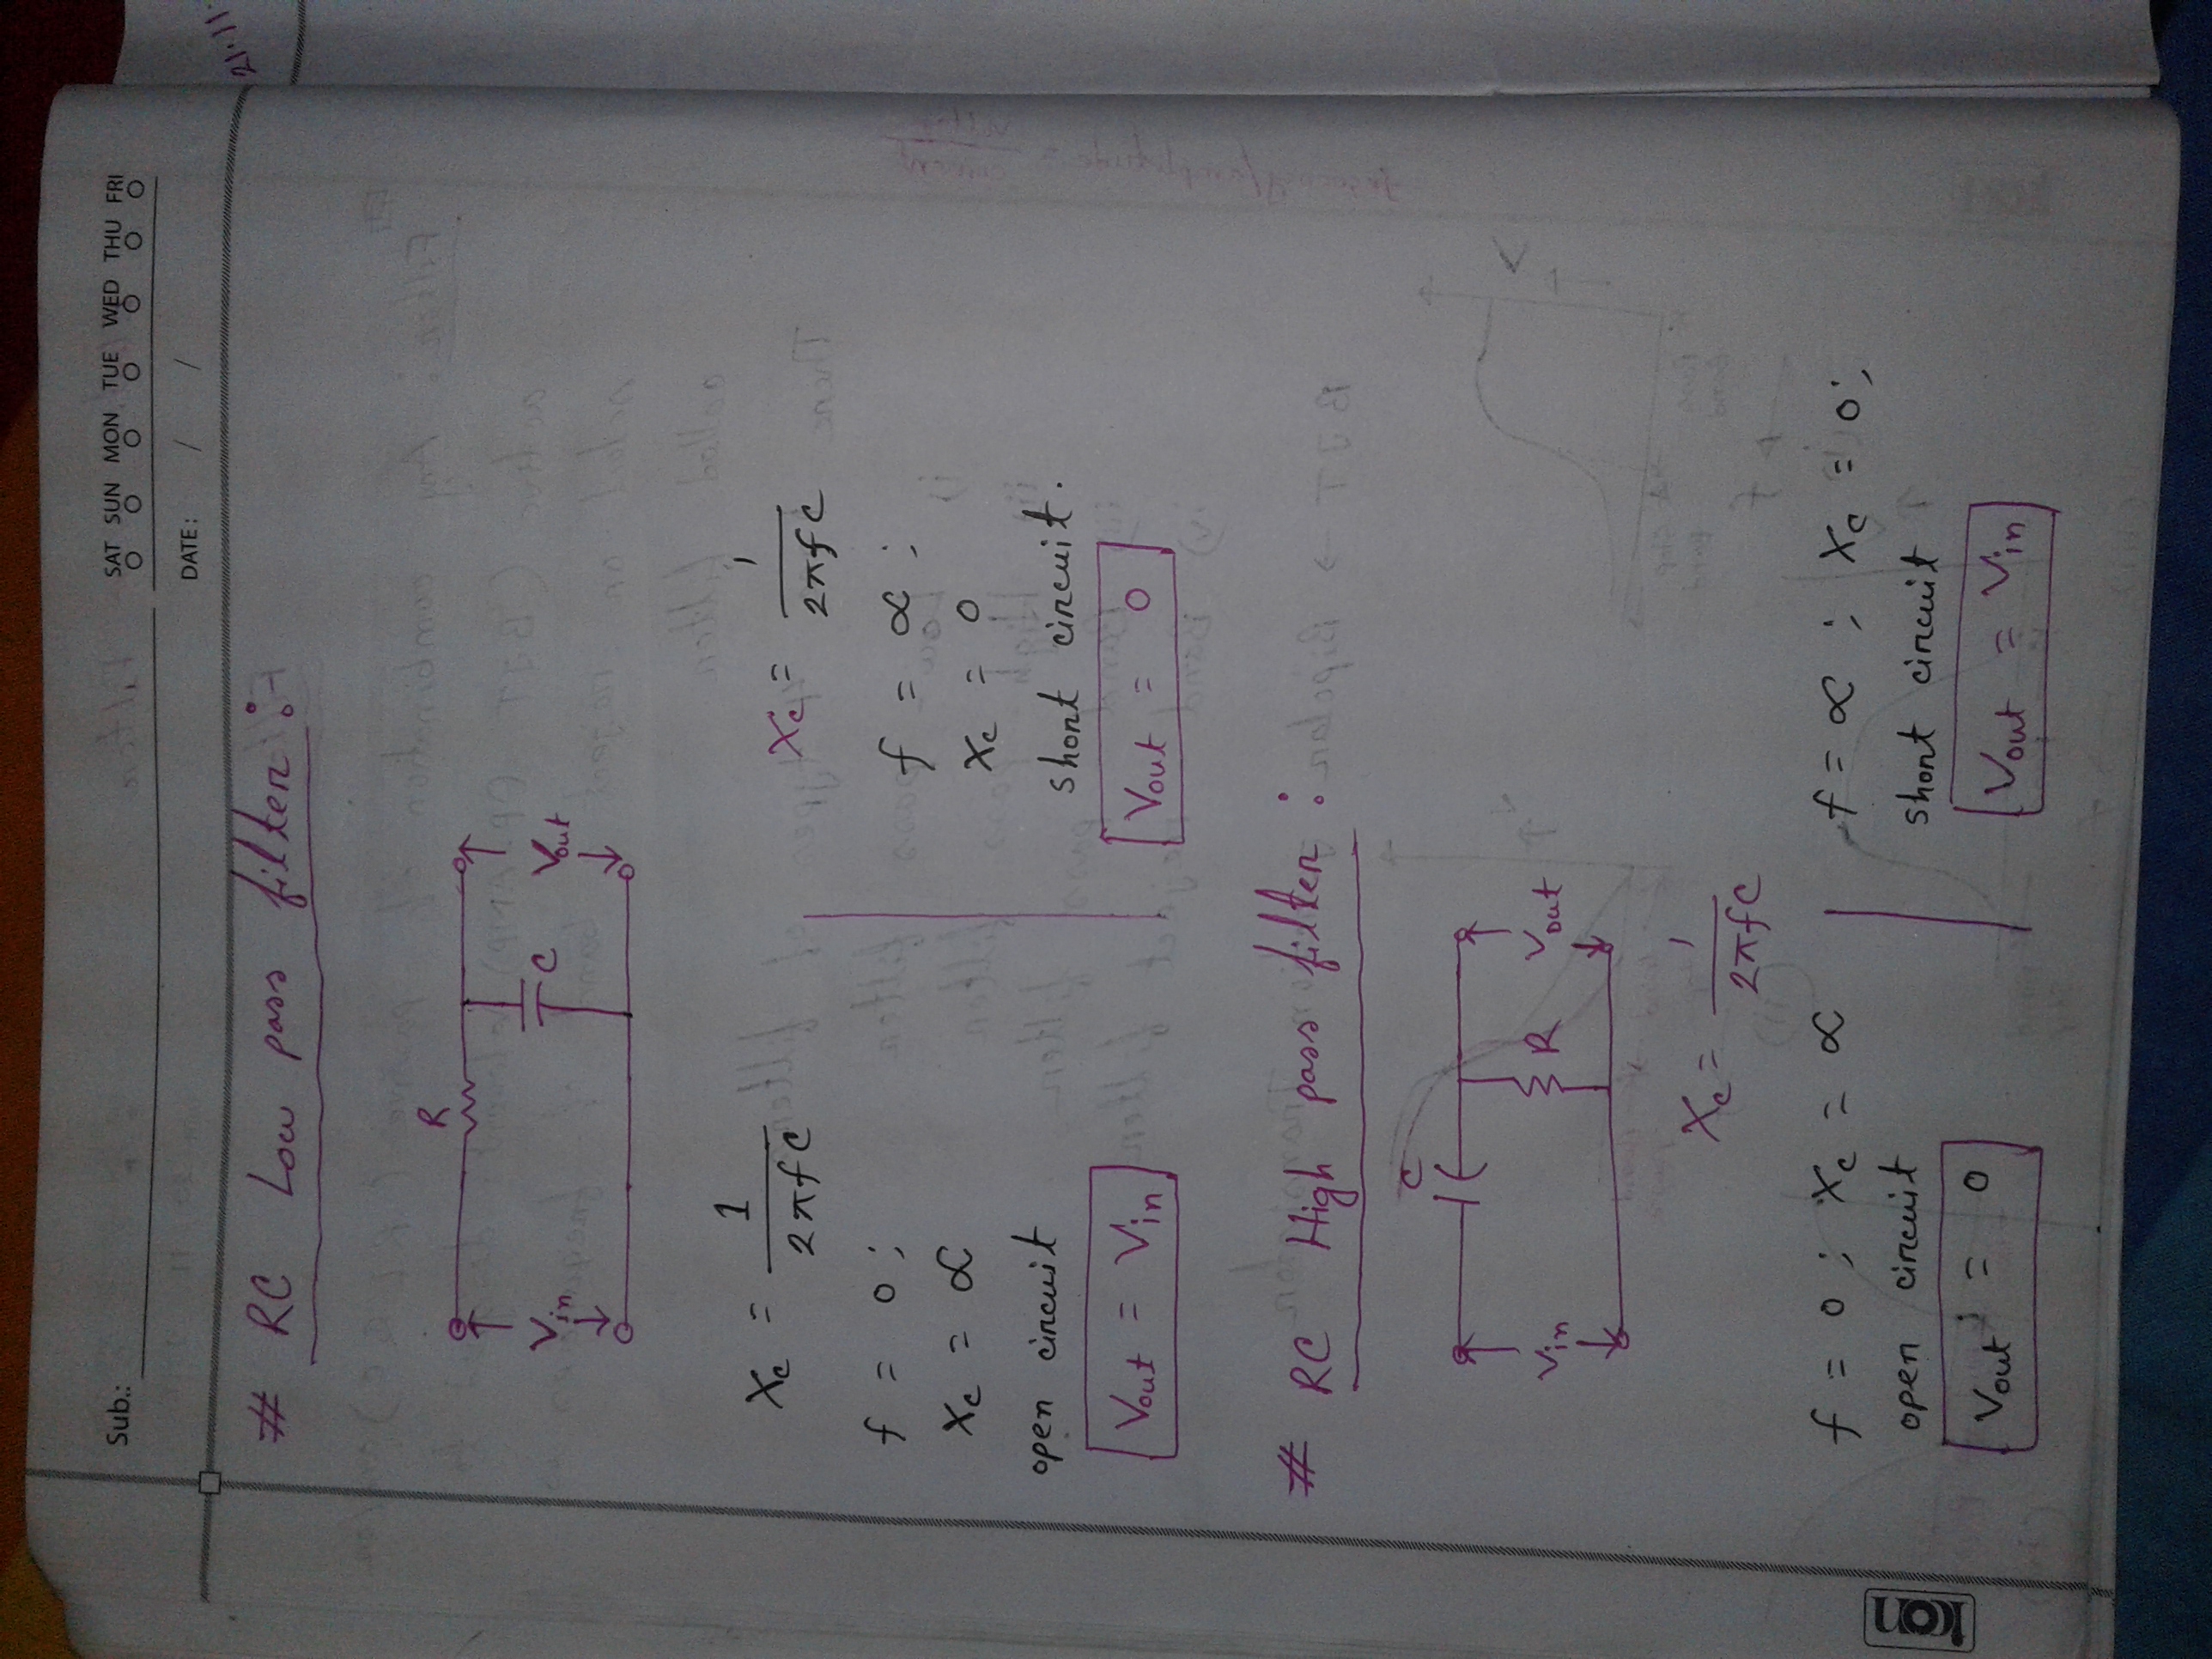 Sub.:
SAT SUN MON TUE WED THU FRI
DATE: / /
21.11.
# RC Low pass filter:
R
Vin
C
Vout
Xc = 1/2πfC
f = 0;
Xc = ∝
open circuit
Vout = Vin
Xc = 1/2πfC
f = ∝;
Xc = 0
short circuit.
Vout = 0
# RC High pass filter:
C
Vin
R
Vout
Xc = 1/2πfC
f = 0; Xc = ∝
open circuit
Vout = 0
f = ∝; Xc = 0;
short circuit
Vout = Vin
icon